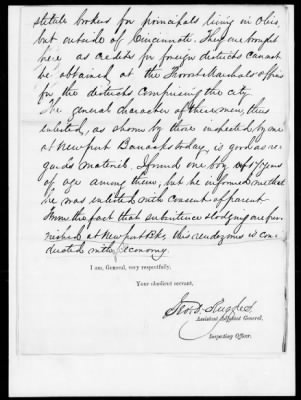 stitute brokers for principals living in Ohio,
but outside of Cincinnati. They are brought
here as credits for foreign districts cannot
be obtained at the Provost Marshals offices
for the districts comprising the city
The general character of these men, thus
enlisted, as shown by those inspected by me
at Newport Barracks today, is good as re-
gards material. I found one boy of 17 years
of age among them, but he informed me that
he was enlisted with consent of parent
From the fact that subsistence & lodging are fur-
nished at Newport Bks this rendezvous is con-
ducted with economy
I am, General, very respectfully,
Your obedient servant,
Hughes
Assistant Adjutant General,
Inspecting Officer.